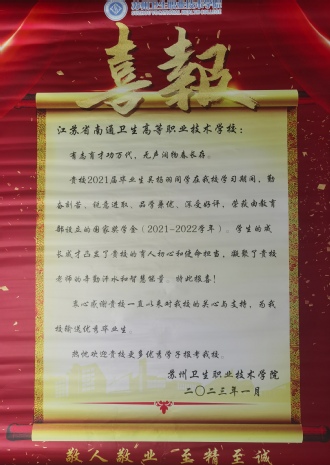 苏州卫生职业技术学院
SUZHOU VOCATIONAL HEALTH COLLEGE
喜報
江苏省南通卫生高等职业技术学校：
有志育才功万代，无声润物春长存。
贵校2021届毕业生吴杨雨同学在我校学习期间，勤
奋刻苦、锐意进取、品学兼优，深受好评，荣获由教育
部设立的国家奖学金（2021-2022学年）。学生的成
长成才凸显了贵校的育人初心和使命担当，凝聚了贵校
老师的辛勤汗水和智慧能量。特此报喜！
衷心感谢贵校一直以来对我校的关心与支持，为我
校输送优秀毕业生。
热忱欢迎贵校更多优秀学子报考我校。
苏州卫生职业技术学院
二〇二三年一月
敬人敬业 至精至诚